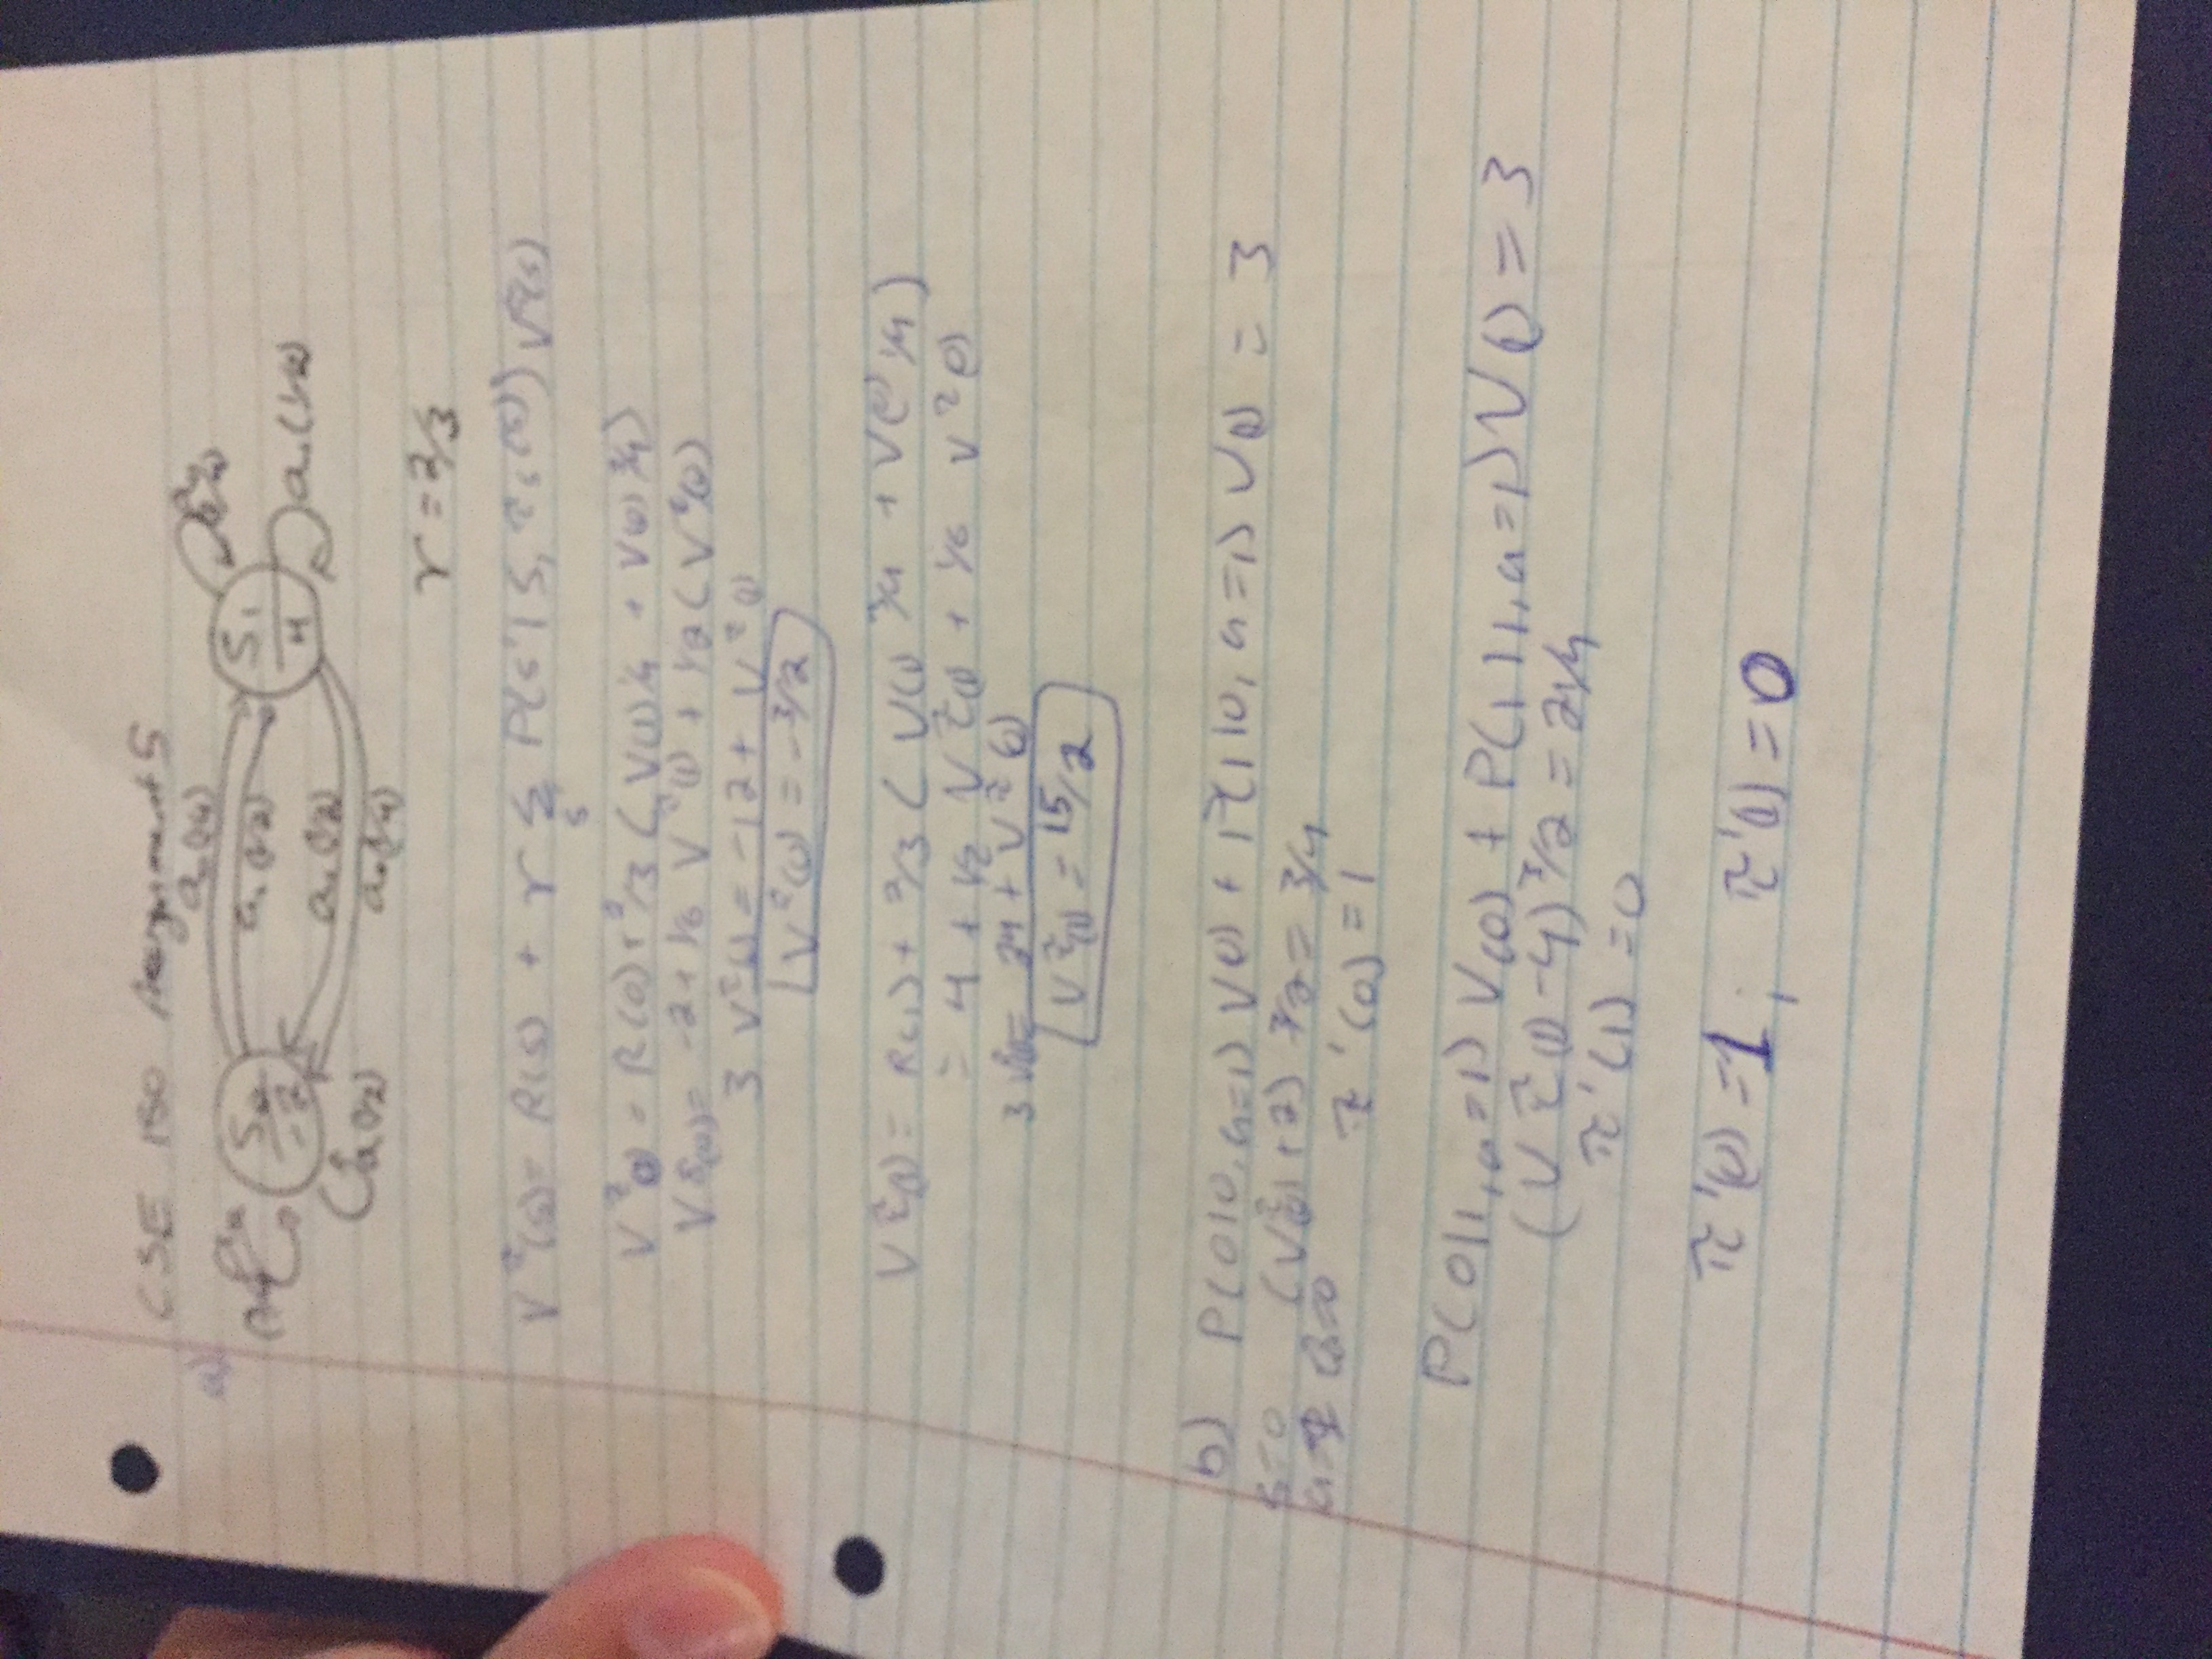 CSE 150 Assignment 5
a)
a₀(1/4)
S₀
-2
a₁(1/2)
S₁
4
a₁(1/2)
a₁(1/2)
a₁(1/2)
a₀(1/4)
γ = 2/3
V^π(s) = R(s) + γ Σ P(s'|s, π(s)) V^π(s)
s
V^π(0) = R(0) + 2/3 (V(1) 1/4 + V(0) 3/4)
V^π(0) = -2 + 1/6 V^π(1) + 1/2 (V^π(0))
3 V^π(0) = -12 + V^π(1)
V^π(0) = -3/2
V^π(1) = R(1) + 2/3 ( V(1) 3/4 + V(0) 1/4 )
= 4 + 1/2 V^π(1) + 1/6 V^π(0)
3 V^π(1) = 24 + V^π(0)
V^π(1) = 15/2
b) P(0|0, a=1) V(0) + P(1|0, a=1) V(1) = 3
s=0 (V^π(0) + 2) 3/2 = 3/4
π'(0) = 1
P(0|1, a=1) V(0) + P(1|1, a=1) V(1) = 3
(V^π(1) - 4) 3/2 = 21/4
π'(1) = 0
π'(0) = 1; π'(1) = 0